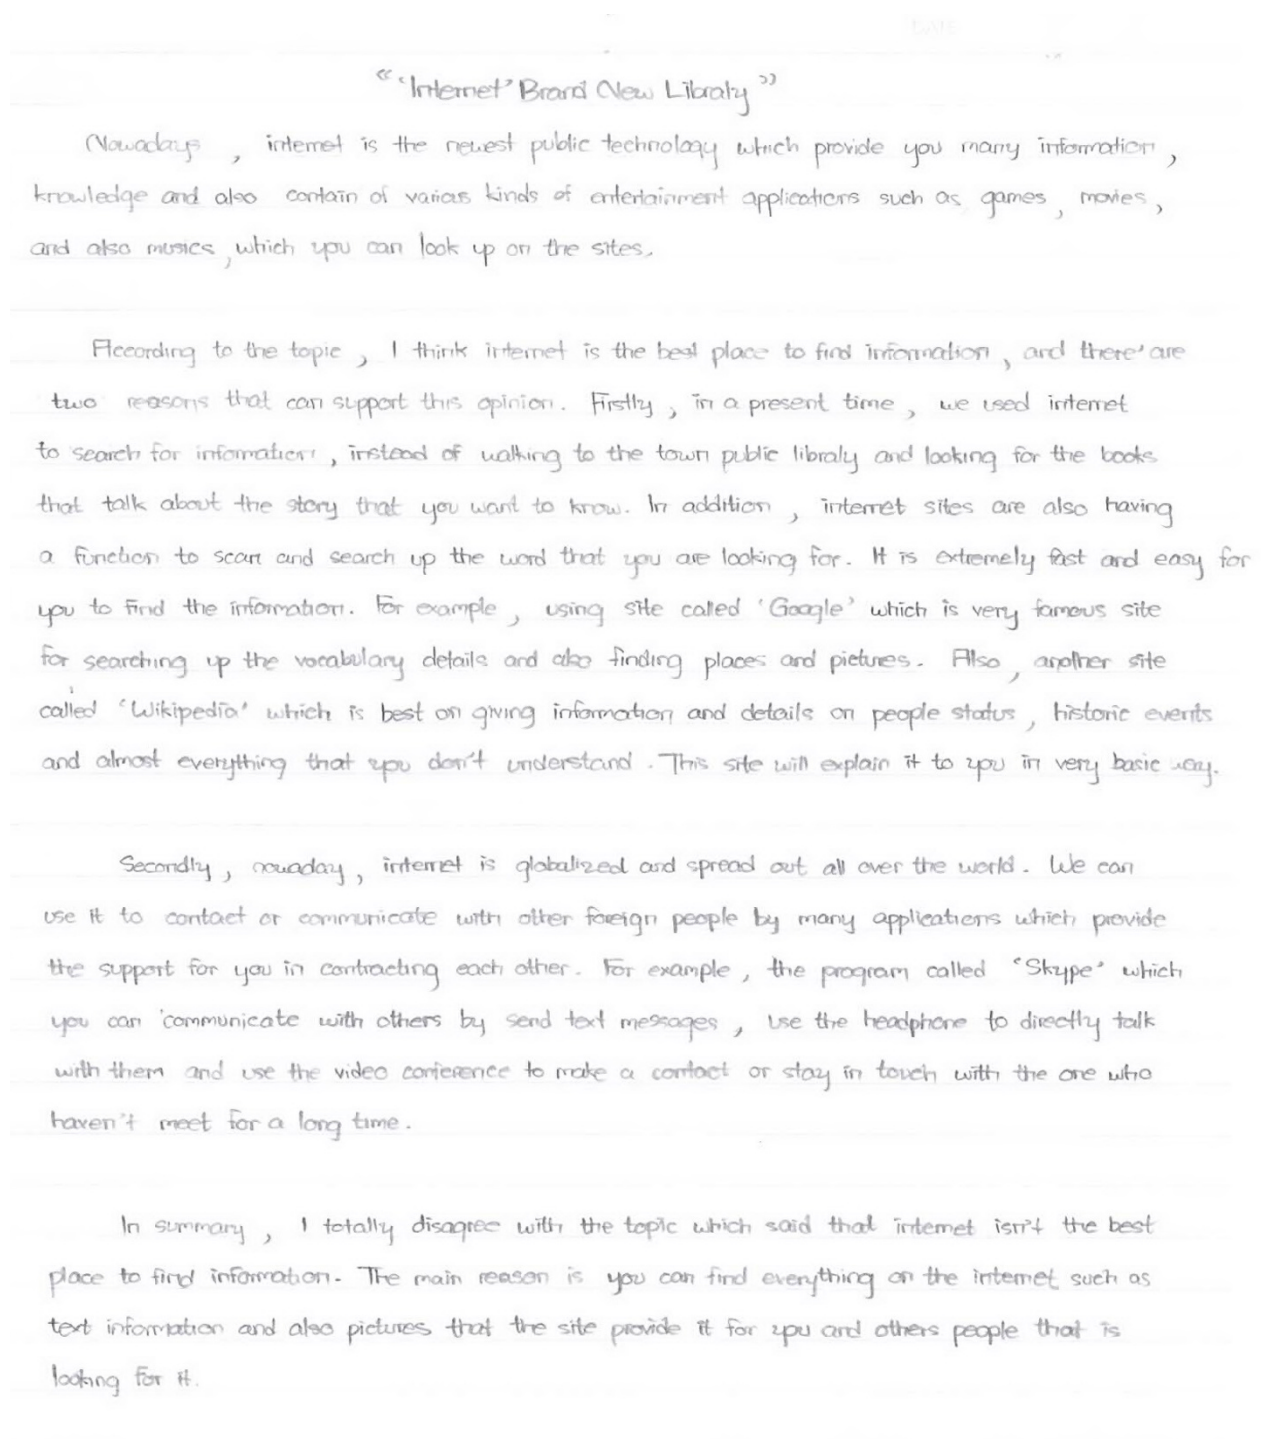 "'Internet' Brand New Libraly"
Nowadays, internet is the newest public technology which provide you many information,
knowledge and also contain of various kinds of entertainment applications such as games, movies,
and also musics, which you can look up on the sites.
According to the topic, I think internet is the best place to find information, and there' are
two reasons that can support this opinion. Firstly, in a present time, we used internet
to search for infomation, instead of walking to the town public libraly and looking for the books
that talk about the story that you want to know. In addition, internet sites are also having
a function to scan and search up the word that you are looking for. It is extremely fast and easy for
you to find the information. For example, using site called 'Google' which is very famous site
for searching up the vocabulary details and also finding places and pictures. Also, another site
called 'Wikipedia' which is best on giving information and details on people status, historic events
and almost everything that you don't understand. This site will explain it to you in very basic way.
Secondly, nowaday, internet is globalized and spread out all over the world. We can
use it to contact or communicate with other foreign people by many applications which provide
the support for you in contracting each other. For example, the program called 'Skype' which
you can communicate with others by send text messages, use the headphone to directly talk
with them and use the video conference to make a contact or stay in touch with the one who
haven't meet for a long time.
In summary, I totally disagree with the topic which said that internet isn't the best
place to find information. The main reason is you can find everything on the internet such as
text information and also pictures that the site provide it for you and others people that is
looking for it.